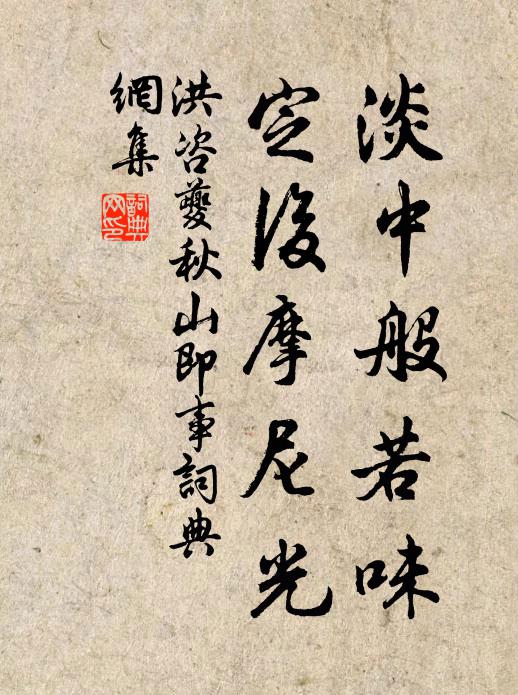 淡中般若味
定後摩尼光
洪咨夔秋山即事詞典
網集
詞典
网印